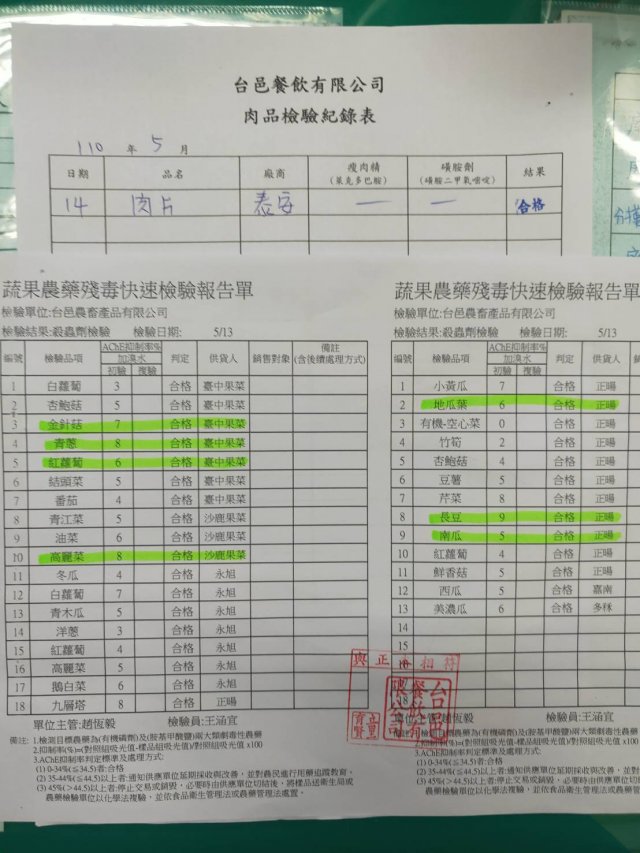 台邑餐飲有限公司
肉品檢驗紀錄表
110 年 5 月
日期 品名 廠商 瘦肉精 (萊克多巴胺) 磺胺劑 (磺胺二甲氧嘧啶) 結果
14 肉片 泰安 — — 合格
蔬果農藥殘毒快速檢驗報告單
檢驗單位:台邑農畜產品有限公司
檢驗結果:殺蟲劑檢驗 檢驗日期: 5/13
編號 檢驗品項 AChE抑制率% 加溴水 初驗 複驗 判定 供貨人 銷售對象 備註 (含後續處理方式)
1 白蘿蔔 3 合格 臺中果菜
2 杏鮑菇 5 合格 臺中果菜
3 金針菇 7 合格 臺中果菜
4 青蔥 8 合格 臺中果菜
5 紅蘿蔔 6 合格 臺中果菜
6 結頭菜 5 合格 臺中果菜
7 番茄 4 合格 臺中果菜
8 青江菜 5 合格 沙鹿果菜
9 油菜 6 合格 沙鹿果菜
10 高麗菜 8 合格 沙鹿果菜
11 冬瓜 4 合格 永旭
12 白蘿蔔 7 合格 永旭
13 青木瓜 5 合格 永旭
14 洋蔥 3 合格 永旭
15 紅蘿蔔 4 合格 永旭
16 高麗菜 5 合格 永旭
17 鵝白菜 6 合格 永旭
18 九層塔 8 合格 正暘
單位主管:趙恆毅 檢驗員:王涵宜
備註: 1.檢測目標農藥為(有機磷劑)及(胺基甲酸鹽)兩大類劇毒性農藥
2.抑制率(%)=(對照組吸光值-樣品組吸光值)/對照組吸光值 x100
3.AChE抑制率判定標準及處理方式:
(1) 0-34%(≦34.5)者:合格
(2) 35-44%(≦44.5)以上者:通知供應單位延期採收與改善，並對農民進行用藥追蹤教育。
(3) 45%(>44.5)以上者:停止交易或銷毀，必要時由供應單位切結後，將樣品送衛生局或
農藥檢驗單位以化學法複驗，並依食品衛生管理法或農藥管理法處置。
蔬果農藥殘毒快速檢驗報告單
檢驗單位:台邑農畜產品有限公司
檢驗結果:殺蟲劑檢驗 檢驗日期: 5/13
編號 檢驗品項 AChE抑制率% 加溴水 初驗 複驗 判定 供貨人
1 小黃瓜 7 合格 正暘
2 地瓜葉 6 合格 正暘
3 有機-空心菜 0 合格 正暘
4 竹筍 2 合格 正暘
5 杏鮑菇 4 合格 正暘
6 豆薯 5 合格 正暘
7 芹菜 8 合格 正暘
8 長豆 9 合格 正暘
9 南瓜 5 合格 正暘
10 紅蘿蔔 4 合格 正暘
11 鮮香菇 5 合格 正暘
12 西瓜 5 合格 嘉南
13 美濃瓜 6 合格 多秝
14
15
16
17
18
與正本相符
台邑餐飲有限公司
單位主管:趙恆毅 檢驗員:王涵宜
1.檢測目標農藥為(有機磷劑)及(胺基甲酸鹽)兩大類劇毒性農藥
2.抑制率(%)=(對照組吸光值-樣品組吸光值)/對照組吸光值 x100
3.AChE抑制率判定標準及處理方式:
(1) 0-34%(≦34.5)者:合格
(2) 35-44%(≦44.5)以上者:通知供應單位延期採收與改善，並對農
(3) 45%(>44.5)以上者:停止交易或銷毀，必要時由供應單位切
農藥檢驗單位以化學法複驗，並依食品衛生管理法或農藥管理